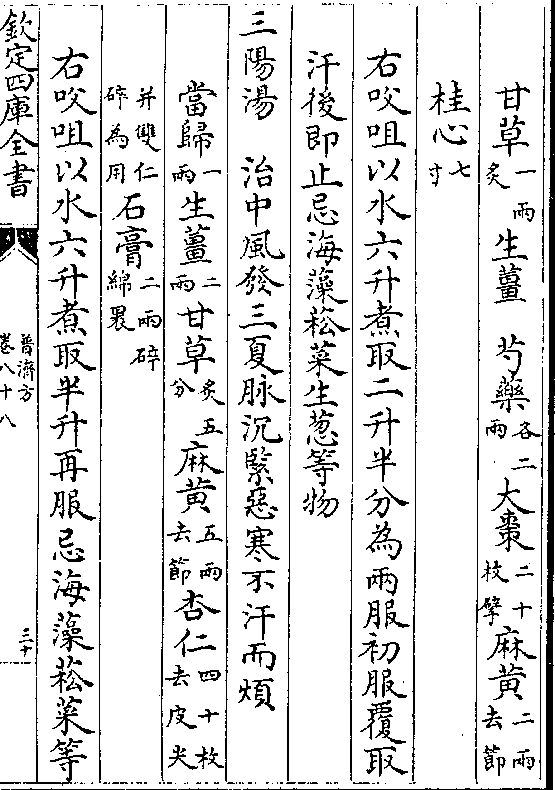 甘草一兩炙生薑芍藥各二兩大棗二十枚擘麻黄二兩去節
桂心七寸
右㕮咀以水六升煮取二升半分為兩服初服覆取
汗後即止忌海藻菘菜生葱等物
三陽湯 治中風發三夏脉沉緊惡寒不汗而煩
當歸一兩生薑二兩甘草炙五分麻黄五兩去節杏仁四十枚去皮尖
并雙仁碎為用石膏二兩碎綿裹
右㕮咀以水六升煮取半升再服忌海藻菘菜等
欽定四庫全書
普濟方
卷八十八
三十